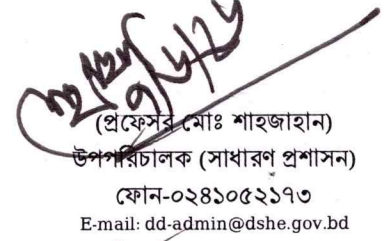 (প্রফেসর মোঃ শাহজাহান)
উপপরিচালক (সাধারণ প্রশাসন)
ফোন-০২৪১০৫২১৭৩
E-mail: dd-admin@dshe.gov.bd